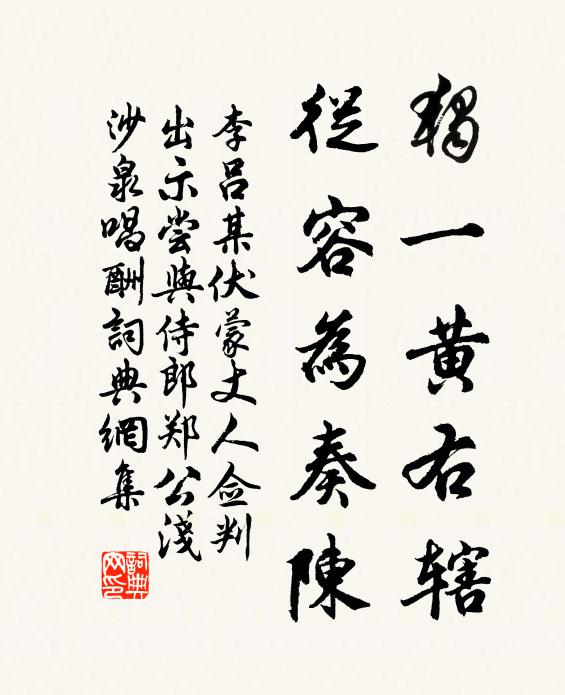 獨一黄右辖
從容為奏陳
李吕某伏蒙丈人佥判
出示尝與侍郎郑公淺
沙泉唱酬詞典網集
詞典網印